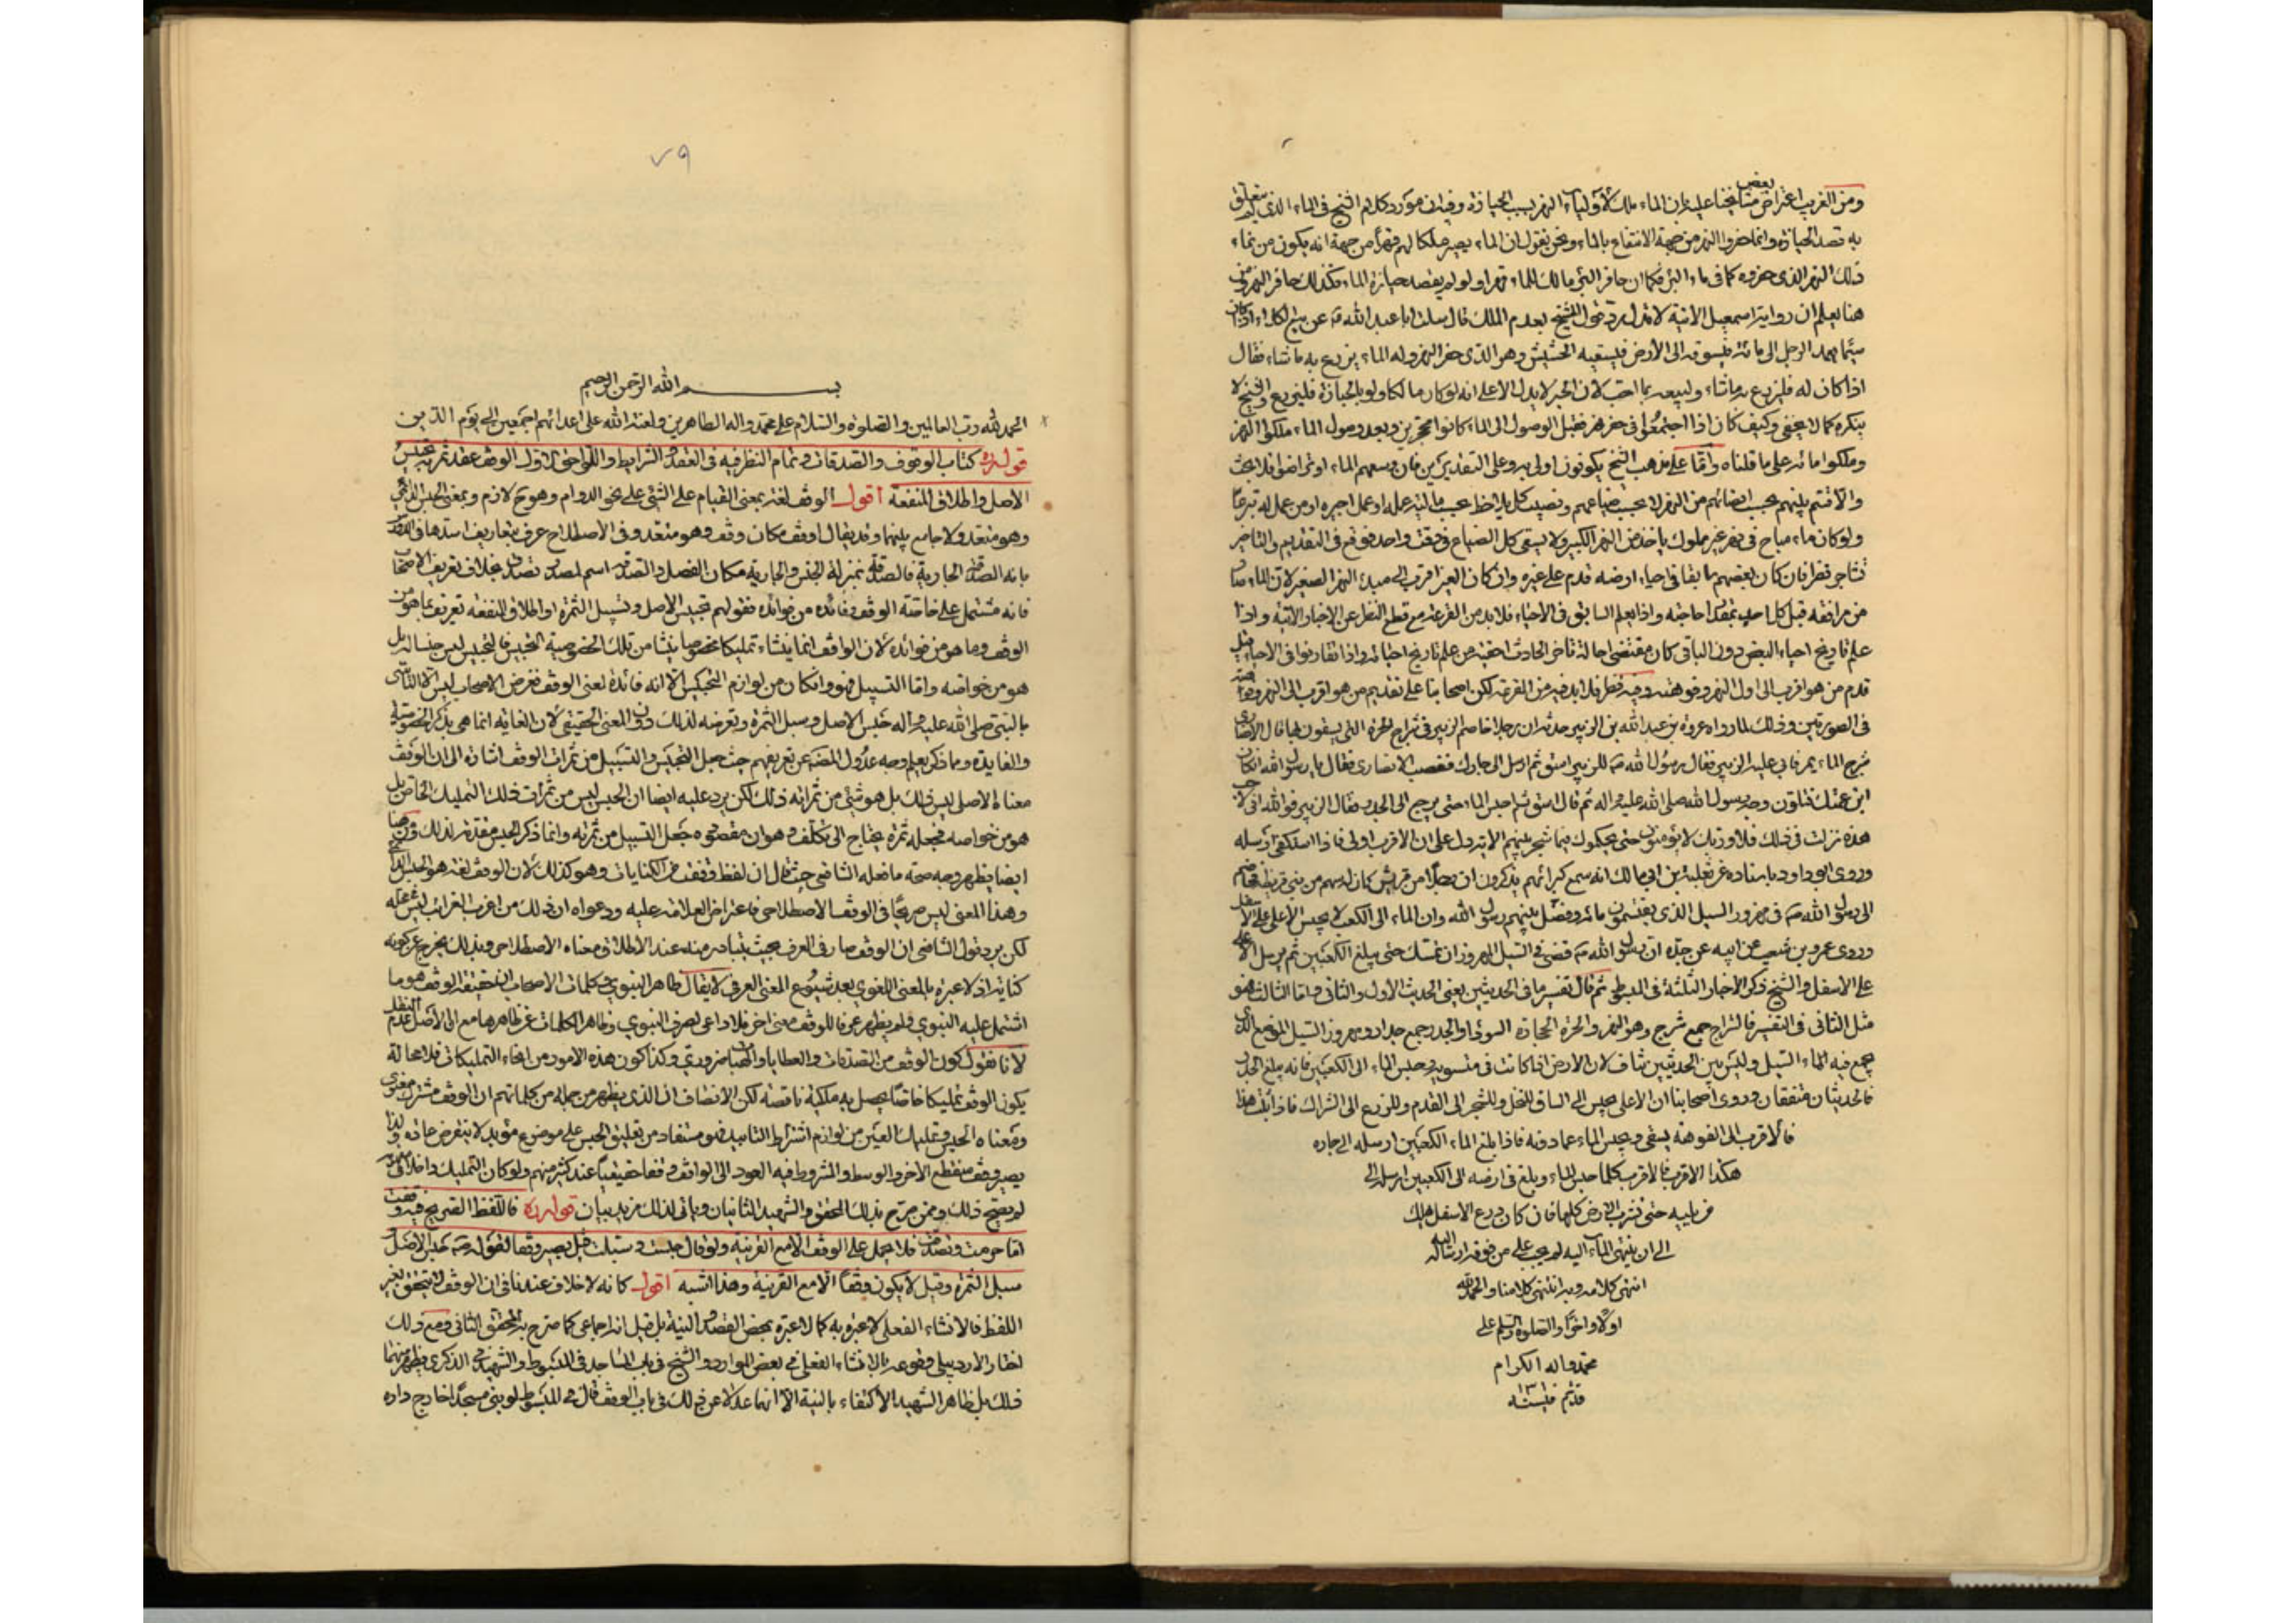 ومن الغريب اعتراض بعض مشايخنا عليه بان الماء ملك لأولياء النهر بسبب الحيازة وفيه ان مورد كلام الشيخ فى الماء الذى لم يتعلق
به قصد الحيازة وانما حفروا النهر من جهة الانتفاع بالماء ونحن نقول ان الماء يصير ملكا لهم قهرا من جهة انه يكون من نماء
ذلك النهر الذى حفروه كما فى ماء البئر فكما ان حافر البئر مالك الماء قهرا ولو لم يقصد حيازة الماء فكذلك حافر النهر ومن
هنا يعلم ان رواية اسمعيل الاتية لا تدل برد قول الشيخ بعدم الملك قال سئلت ابا عبد الله ع عن بيع الكلاء اذا كان
سيحا يعمد الرجل الى مائه فيسوقه الى الأرض فيسقيه الحشيش وهو الذى حفر النهر وله الماء يزرع به ما شاء فقال
اذا كان له فليزرع به ما شاء وليبعه بما احب لان الخبر لا يدل الا على انه لو كان مالكا ولو بالحيازة فليزرع والشيخ لا
ينكره كما لا يخفى وكيف كان اذا اجتمعوا فى حفر نهر فقبل الوصول الى الماء كانوا محجرين وبعد وصول الماء ملكوا النهر
وملكوا مائه على ما قلناه واما على مذهب الشيخ يكونون اولى به وعلى التقديرين فان وسعهم الماء او تراضوا فلا بحث
والا قسم بينهم بحسب انصبائهم من النهر لا بحسب ضياعهم ونصيب كل يلاحظ بحسب مالية عمله او عمل اجيره او من عمل له تبرعا
ولو كان ماء مباح فى نهر غير مملوك يأخذ من النهر الكبير ولا يسقى كل الضياع فى وقت واحد فوقع فى التقديم والتاخير
تشاجر فنظر فان كان بعضهم سابقا فى احياء ارضه قدم على غيره وان كان الغير اقرب الى مبدء النهر الصغير لان الماء صار
من مرافقه قبل كل احد بمقدار حاجته واذا لم يعلم السابق فى الاحياء فلا بد من القرعة مع قطع النظر عن الاخبار الاتية واذا
علم تاريخ احياء البعض دون الباقى كان مقتضى اصالة تأخر الحادث احقية من علم تاريخ احيائه واذا تقارنوا فى الاحياء قيل
قدم من هو اقرب الى اول النهر وفوهته وفيه نظر فلا بد فيه من القرعة لكن اصحابنا على تقديم من هو اقرب الى النهر وفوهته
فى الصورتين وذلك لما رواه عروة بن عبد الله بن الزبير حدثه ان رجلا خاصم الزبير فى شراج الحرة التى يسقون بها فقال الانصارى
شرح الماء يمر فابى عليه الزبير فقال رسول الله ص للزبير اسق ثم ارسل الى جارك فغضب الانصارى فقال يا رسول الله ان كان
ابن عمتك فتلون وجه رسول الله صلى الله عليه واله ثم قال اسق ثم احبس الماء حتى يرجع الى الجدر فقال الزبير فوالله انى لاحسب
هذه نزلت فى ذلك فلا وربك لا يؤمنون حتى يحكموك فيما شجر بينهم الاية دل على ان الاقرب اولى فاذا استكفى ارسله
وروى ابو داود باسناده عن ثعلبة بن ابى مالك انه سمع كبرائهم يذكرون ان رجلا من قريش كان له سهم من بنى قريظة فخاصم
الى رسول الله ص فى مهزور السيل الذى يقتسمون مائه وفصل بينهم رسول الله وان الماء الى الكعب لا يحبس الأعلى على الأسفل
وروى عمرو بن شعيب عن ابيه عن جده ان رسول الله ص قضى فى السيل المهزور ان يمسك حتى يبلغ الكعبين ثم يرسل الأعلى
على الاسفل والشيخ ذكر الاخبار الثلثة فى المبسوط ثم قال تفسير ما فى الحديثين يعنى الحديث الاول والثانى واما الثالث فهو
مثل الثانى فى التفسير فالشراج جمع شرج وهو النهر والحرة الحجارة السوداء والجدر جمع جدار ومهزور السيل الموضع الذى
يجمع فيه الماء السيل وليس بين الحديثين تناف لان الارض اذا كانت فى مستوية وحبس الماء الى الكعبين فانه يبلغ الجدر
فالحديثان متفقان وروى اصحابنا ان الاعلى يحبس الى الساق للنخل وللشجر الى القدم وللزرع الى الشراك فاذا ثبت هذا
فالاقرب الى الفوهة يسقى ويحبس الماء عمادونه فاذا بلغ الماء الكعبين ارسله الى جاره
هكذا الاقرب فالاقرب كلما حبس الماء وبلغ فى ارضه الى الكعبين ارسله الى
من يليه حتى تشرب الارض كلها فان كان زرع الاسفل يهلك
الى ان ينتهى الماء اليه لم يجب على من فوقه ارساله اليه
انتهى كلامه وبه انتهى كلامنا والحمد لله
اولا واخرا والصلوة والسلم على
محمد واله الكرام
٧٩
بسم الله الرحمن الرحيم
الحمد لله رب العالمين والصلوة والسلام على محمد واله الطاهرين ولعنة الله على اعدائهم اجمعين الى يوم الدين
قوله ره كتاب الوقوف والصدقات وتمام النظر فيه فى العقد والشرايط واللواحق الاول الوقف عقد ثمرته تحبيس
الاصل واطلاق المنفعة اقول الوقف لغة بمعنى القيام على الشئ على نحو الدوام وهو ح لازم وبمعنى الحبس الدائمى
وهو متعد ولا جامع بينهما وقد يقال اوقف مكان وقف وهو متعد وفى الاصطلاح عرف بتعاريف اسدها ما فى الدروس
بانه الصدقة الجارية فالصدقة بمنزلة الجنس والجارية مكان الفصل والصدقة اسم لمصدر تصدق بخلاف تعريف الاصحاب
فانه مشتمل على خاصة الوقف وفائدة من فوائده فقولهم تحبيس الاصل وتسبيل الثمرة او اطلاق المنفعة تعريف بما هو من
الوقف وما هو من فوائده لان الواقف انما ينشاء تمليكا مخصوصا ينشا من تلك الخصوصية التحبيس فالتحبيس ليس جنسا له بل
هو من خواصه واما التسبيل فهو وان كان من لوازم التحبيس الا انه فائدة لعنى الوقف فغرض الاصحاب ليس الا التأسى
بالنبى صلى الله عليه واله حبس الاصل وسبل الثمرة وتعرضه لذلك دون المعنى الحقيقى لان الغاية انما هى بذكر الخصوصية
والفايدة ومما ذكر يعلم وجه عدول المصنف عن تعريفهم حيث جعل التحبيس والتسبيل من ثمرات الوقف اشارة الى ان الوقف
معناه الاصلى ليس ذلك بل هو شئ من ثمراته ذلك لكن يرد عليه ايضا ان الحبس ليس من ثمرات ذلك التمليك الخاص بل
هو من خواصه فجعله ثمرة يحتاج الى تكلف وهو ان مقصوده جعل التسبيل من ثمرته وانما ذكر الحبس مقدمة لذلك ومن هنا
ايضا يظهر وجه صحة ما فعله الشافعى حيث قال ان لفظ وقفت من الكنايات وهو كذلك لان الوقف لغة هو الحبس الدائمى
وهذا المعنى ليس صريحا فى الوقف الاصطلاحى فاعتراض العلامة عليه ودعواه ان ذلك من اغرب الغرائب ليس فى محله
لكن يرد قول الشافعى ان الوقف صار فى العرف بحيث يتبادر منه عند الاطلاق معناه الاصطلاحى وبذلك يخرج عن كونه
كناية اذ لا عبرة بالمعنى اللغوى بعد شيوع المعنى العرفى لا يقال ظاهر النبوى وكلمات الاصحاب ان حقيقة الوقف هو ما
اشتمل عليه النبوى ولم يظهر عرفا للوقف معنى اخر فلا داعى لصرف النبوى وظاهر الكلمات عن ظاهرها مع ان الاصل عدم النقل
لانا نقول كون الوقف من الصدقات والعطايا والهبات ضرورى وكذا كون هذه الامور من انحاء التمليكات فلا محالة
يكون الوقف تمليكا خاصا يحصل به ملكية ناقصة لكن الانصاف ان الذى يظهر من جملة من كلماتهم ان الوقف مشترك معنوى
ومعناه الحبس وتمليك العين من لوازم اشتراط التابيد فهو مستفاد من تعليق الحبس على موضوع مؤبد لا ينقرض عادة ولذا
يصير وقف منقطع الاخر والوسط والمشروط فيه العود الى الواقف وقفا حقيقيا عند كثير منهم ولو كان التمليك داخلا فى مفهومه
لم يصح ذلك وممن صرح بذلك المحقق والشهيد الثانيان وياتى لذلك مزيد بيان قوله ره فاللفظ الصريح فيه وقفت
اما حرمت وتصدقت فلا يحمل على الوقف الا مع القرينة ولو قال حبست وسبلت قيل يصير وقفا لقوله ص حبس الاصل و
سبل الثمرة وقيل لا يكون وقفا الا مع القرينة وهذا اشبه اقول كانه لا خلاف عندنا فى ان الوقف لا يتحقق بغير
اللفظ فالانشاء الفعلى لا عبرة به كما لا عبرة بمحض القصد والنية بل قيل انه اجماعى كما صرح به المحقق الثانى ومع ذلك
اختار الاردبيلى وقوعه بالانشاء الفعلى فى بعض الموارد والشيخ فى باب المساجد فى المبسوط والشهيد فى الذكرى يظهر منهما
ذلك بل ظاهر الشهيد الاكتفاء بالنية الا انهما عدلا عن ذلك فى باب الوقف قال فى المبسوط لو بنى مسجدا خارج داره